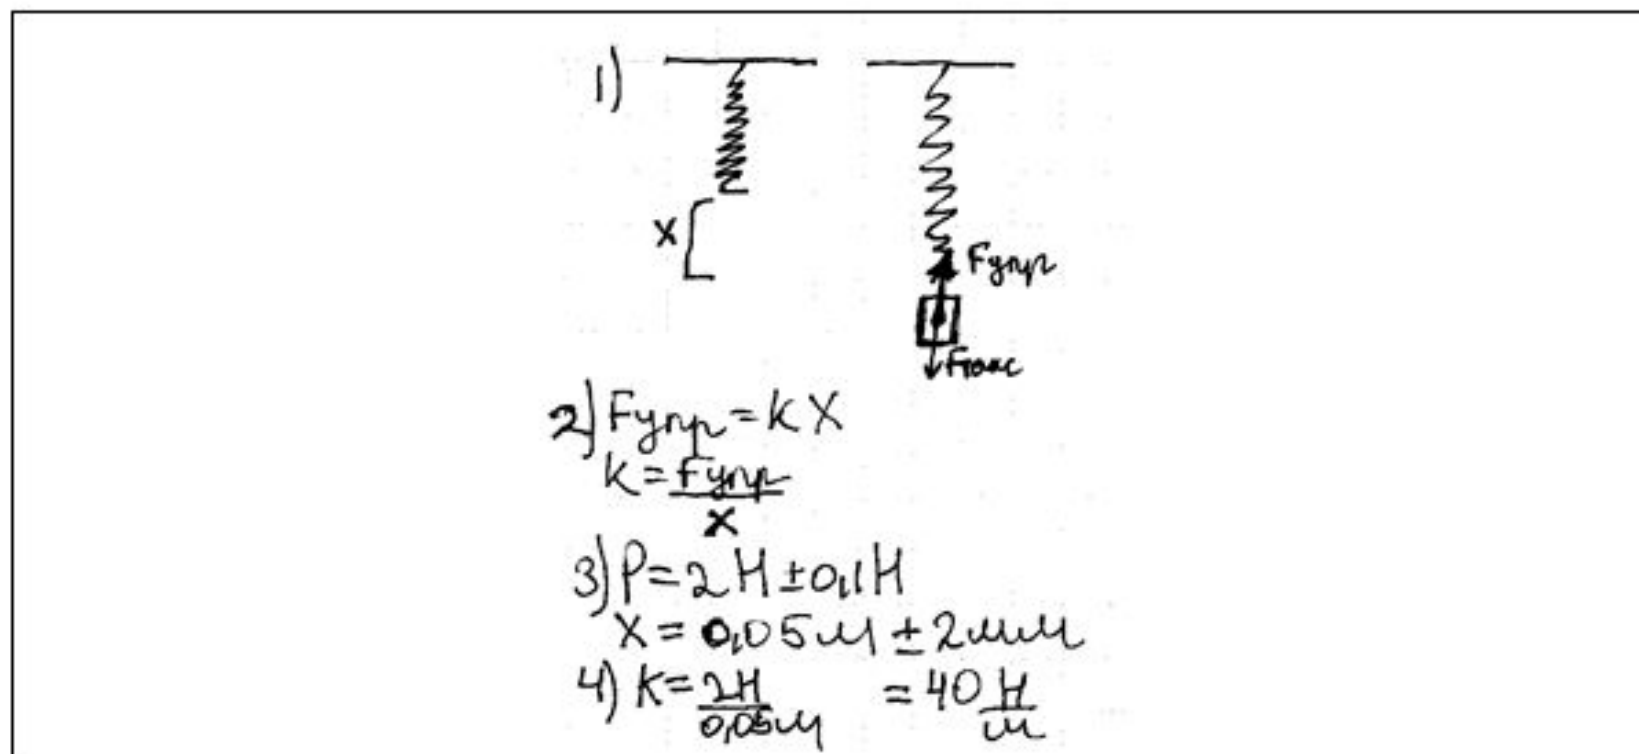 1)
x
Fупр
Fтяж
2) Fупр = k x
k = Fупр / x
3) P = 2 Н ± 0,1 Н
x = 0,05 м ± 2 мм
4) k = 2Н / 0,05м = 40 Н / м